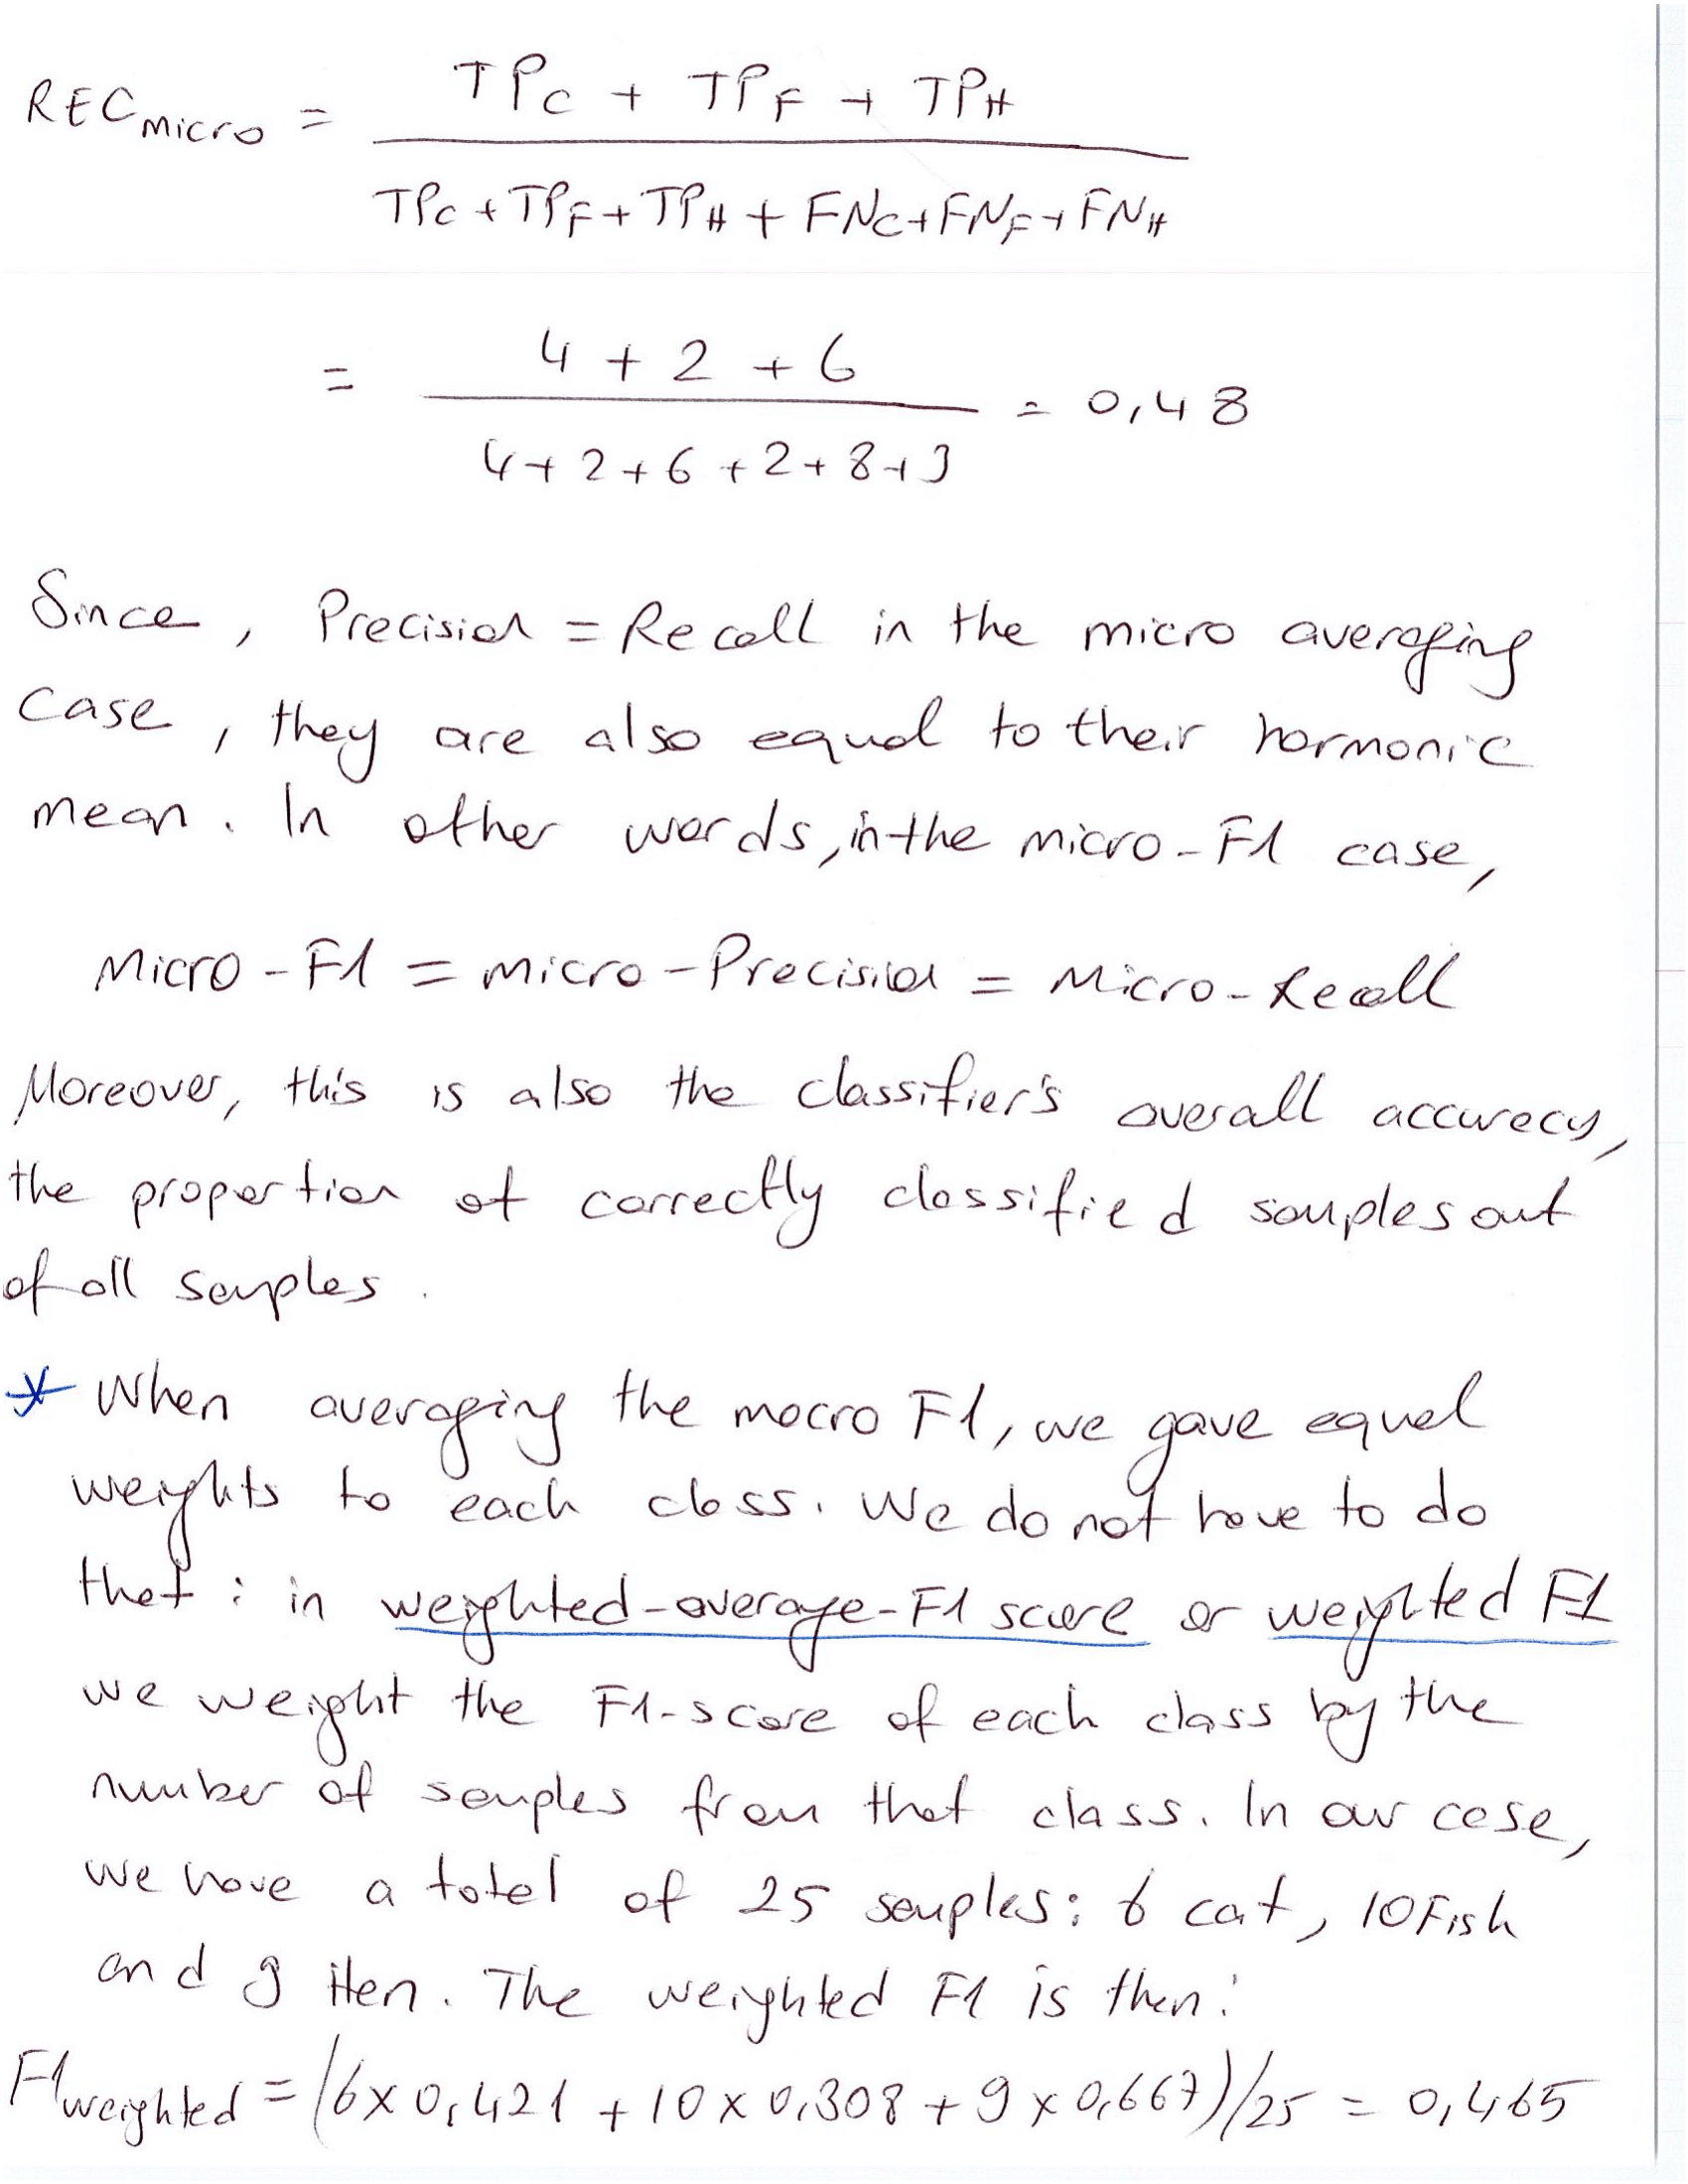 REC micro = TPC + TPF + TPH
TPC + TPF + TPH + FNC + FNF + FNH
= 4 + 2 + 6
4 + 2 + 6 + 2 + 8 + 3
= 0,48
Since, Precision = Recall in the micro averaging
case, they are also equal to their harmonic
mean. In other words, in the micro-F1 case,
Micro-F1 = micro-Precision = Micro-Recall
Moreover, this is also the classifier's overall accuracy,
the proportion of correctly classified samples out
of all samples.
* When averaging the macro F1, we gave equal
weights to each class. We do not have to do
that: in weighted-average-F1 score or weighted F1
we weight the F1-score of each class by the
number of samples from that class. In our case,
we have a total of 25 samples: 6 cat, 10 Fish
and 9 Hen. The weighted F1 is then:
F1 weighted = (6x0,421 + 10x0,308 + 9x0,667)/25 = 0,465